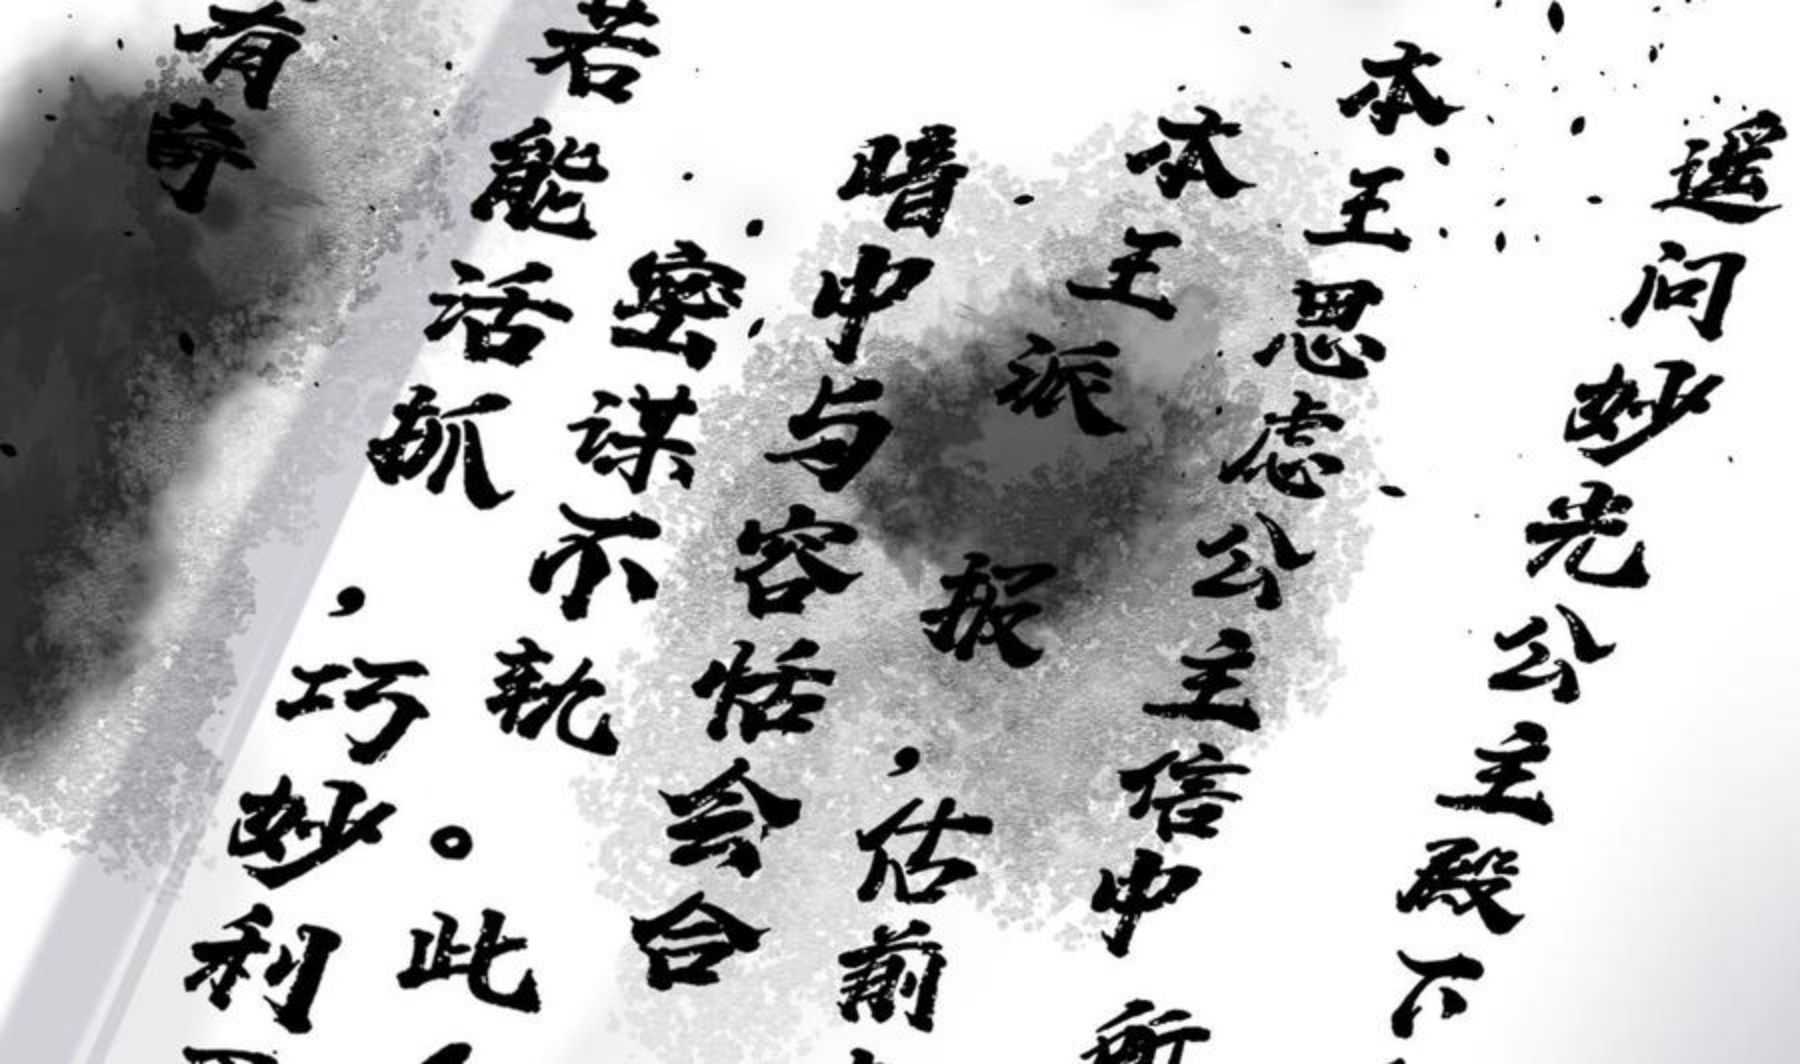 遥问妙光公主殿下
本王思虑公主信中所
本王派 报，估前
暗中与容恬会合
密谋不轨。此
若能活抓，巧妙利
有奇